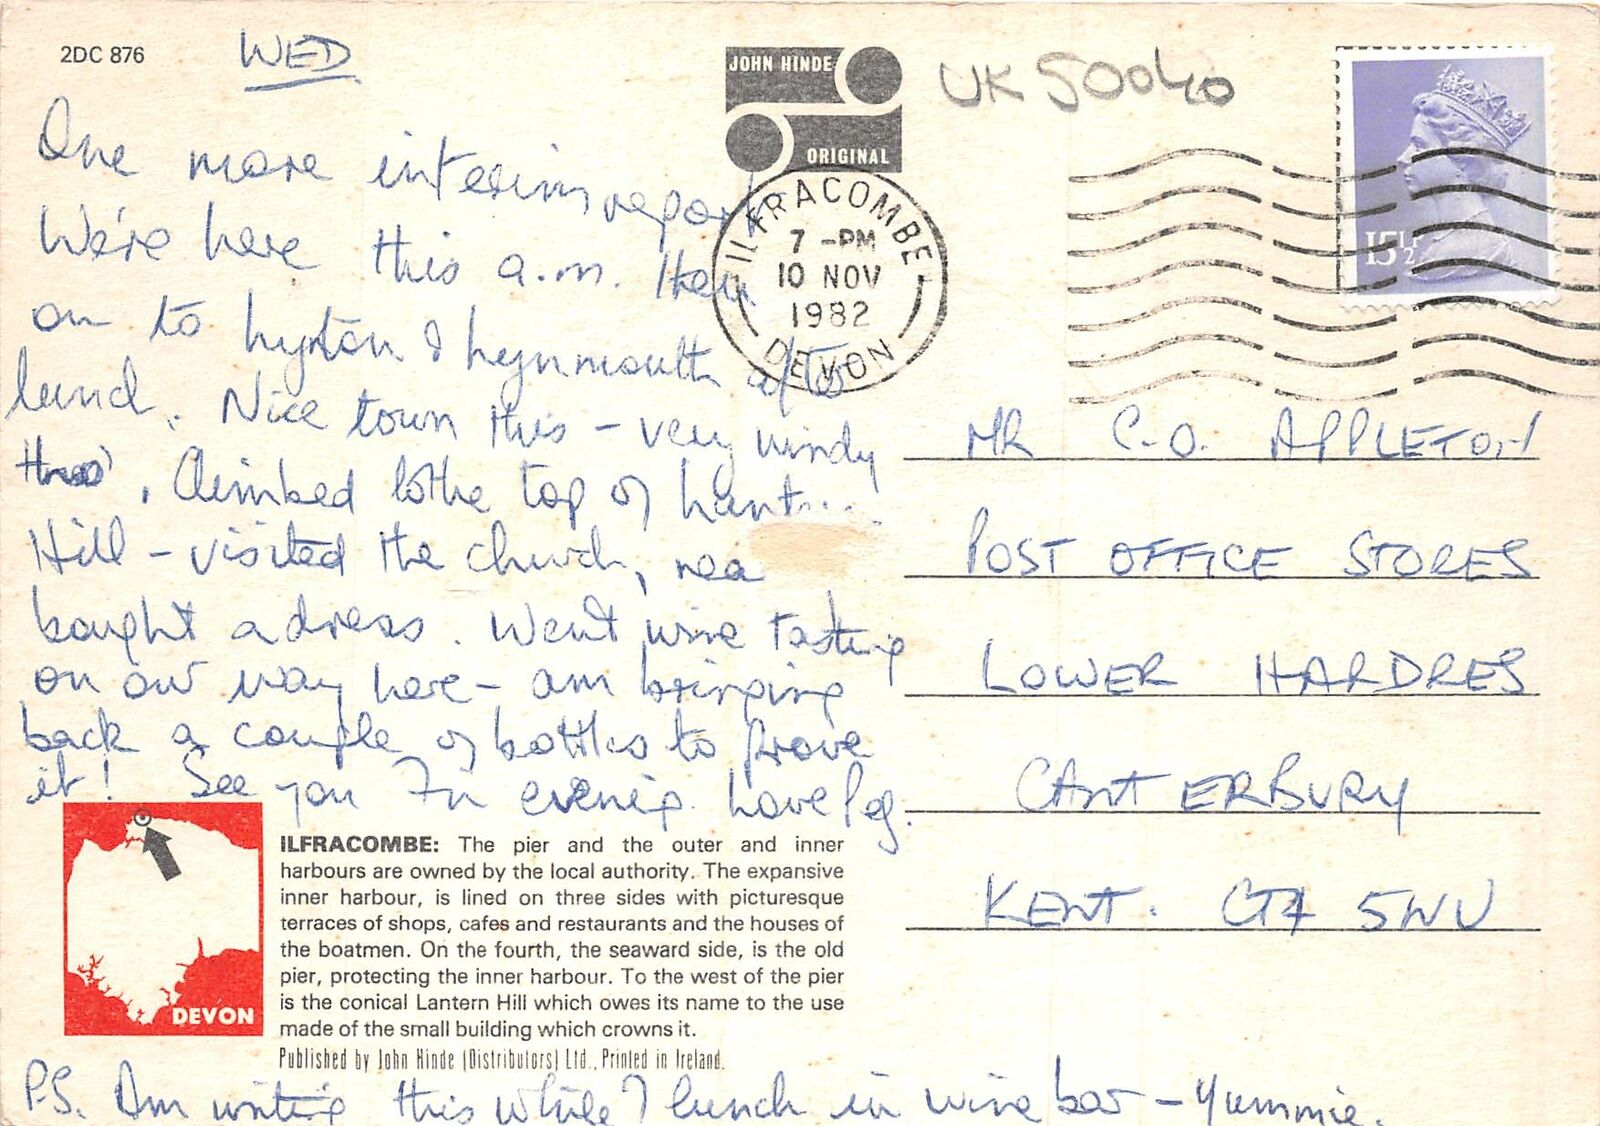 2DC 876
WED
One more interim report
We're here this a.m. Then
on to Lynton & Lynmouth after
lunch. Nice town this - very windy
tho'. Climbed to the top of
Hill - visited the church,
bought a dress. Went wine tasting
on our way here - am bringing
back a couple of bottles to prove
it! See you Fri evening. Love
JOHN HINDE
ORIGINAL
UK 50040
ILFRACOMBE
7 - PM
10 NOV
1982
DEVON
15½P
MR C.O. APPLETON
POST OFFICE STORES
LOWER HARDRES
CANTERBURY
KENT. CT4 5NU
DEVON
ILFRACOMBE: The pier and the outer and inner
harbours are owned by the local authority. The expansive
inner harbour, is lined on three sides with picturesque
terraces of shops, cafes and restaurants and the houses of
the boatmen. On the fourth, the seaward side, is the old
pier, protecting the inner harbour. To the west of the pier
is the conical Lantern Hill which owes its name to the use
made of the small building which crowns it.
Published by John Hinde (Distributors) Ltd., Printed in Ireland.
P.S. Am writing this while I lunch in wine bar - Yummie.